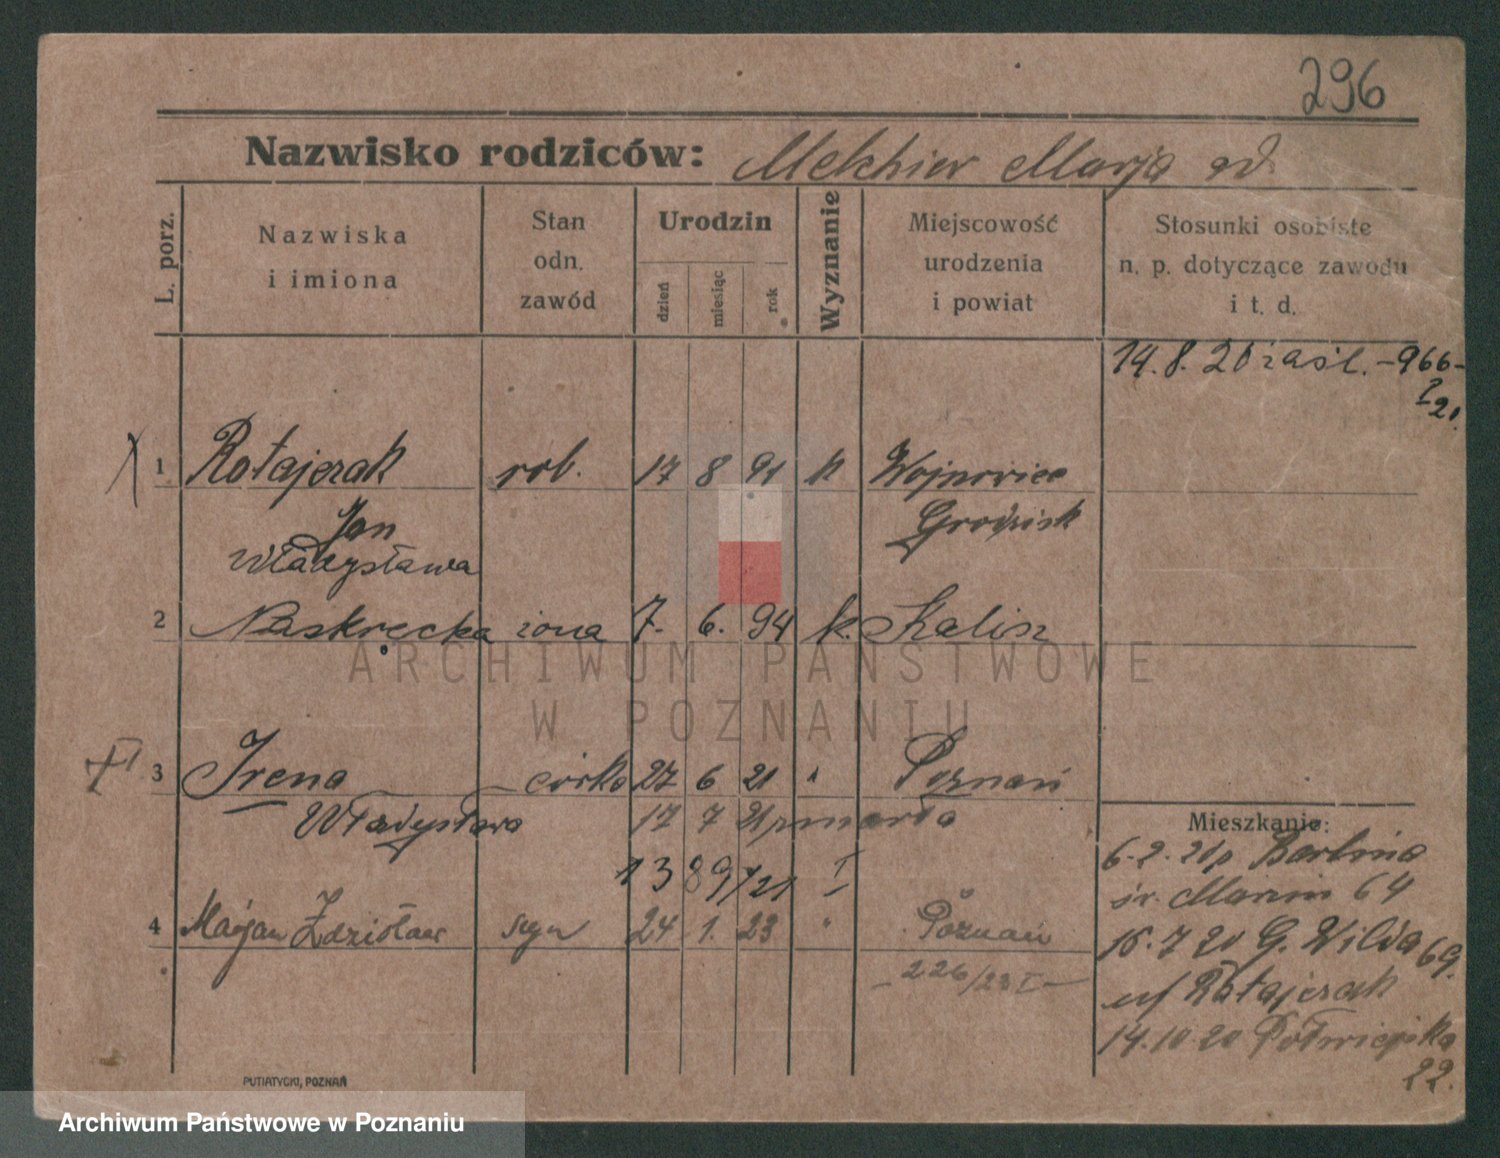 296
Nazwisko rodziców: Melchier Marja
L. porz.
Nazwiska i imiona
Stan odn. zawód
Urodzin
dzień
miesiąc
rok
Wyznanie
Miejscowość urodzenia i powiat
Stosunki osobiste n. p. dotyczące zawodu i t. d.
14.8.20 zaśl. -966-
I 20.
1 Ratajczak rob. 17 8 91 k Wojnowice
Jan Grodzisk
Władysława
2 Naskręcka żona 7. 6. 94 k. Kalisz
ARCHIWUM PAŃSTWOWE
W POZNANIU
3 Irena córka 27 6 21 " Poznań
Władysława 17 7 21 umarła
1389/21 I
4 Marjan Zdzisław syn 24 1. 23 " Poznań
226/23 I
Mieszkanie:
6.2.20 p Berlina
św. Marcin 64
15.7.20 G. Wilda 69.
u/ Ratajczak
14.10.20 Półwiejska
22.
PUTIATYCKI, POZNAŃ
Archiwum Państwowe w Poznaniu